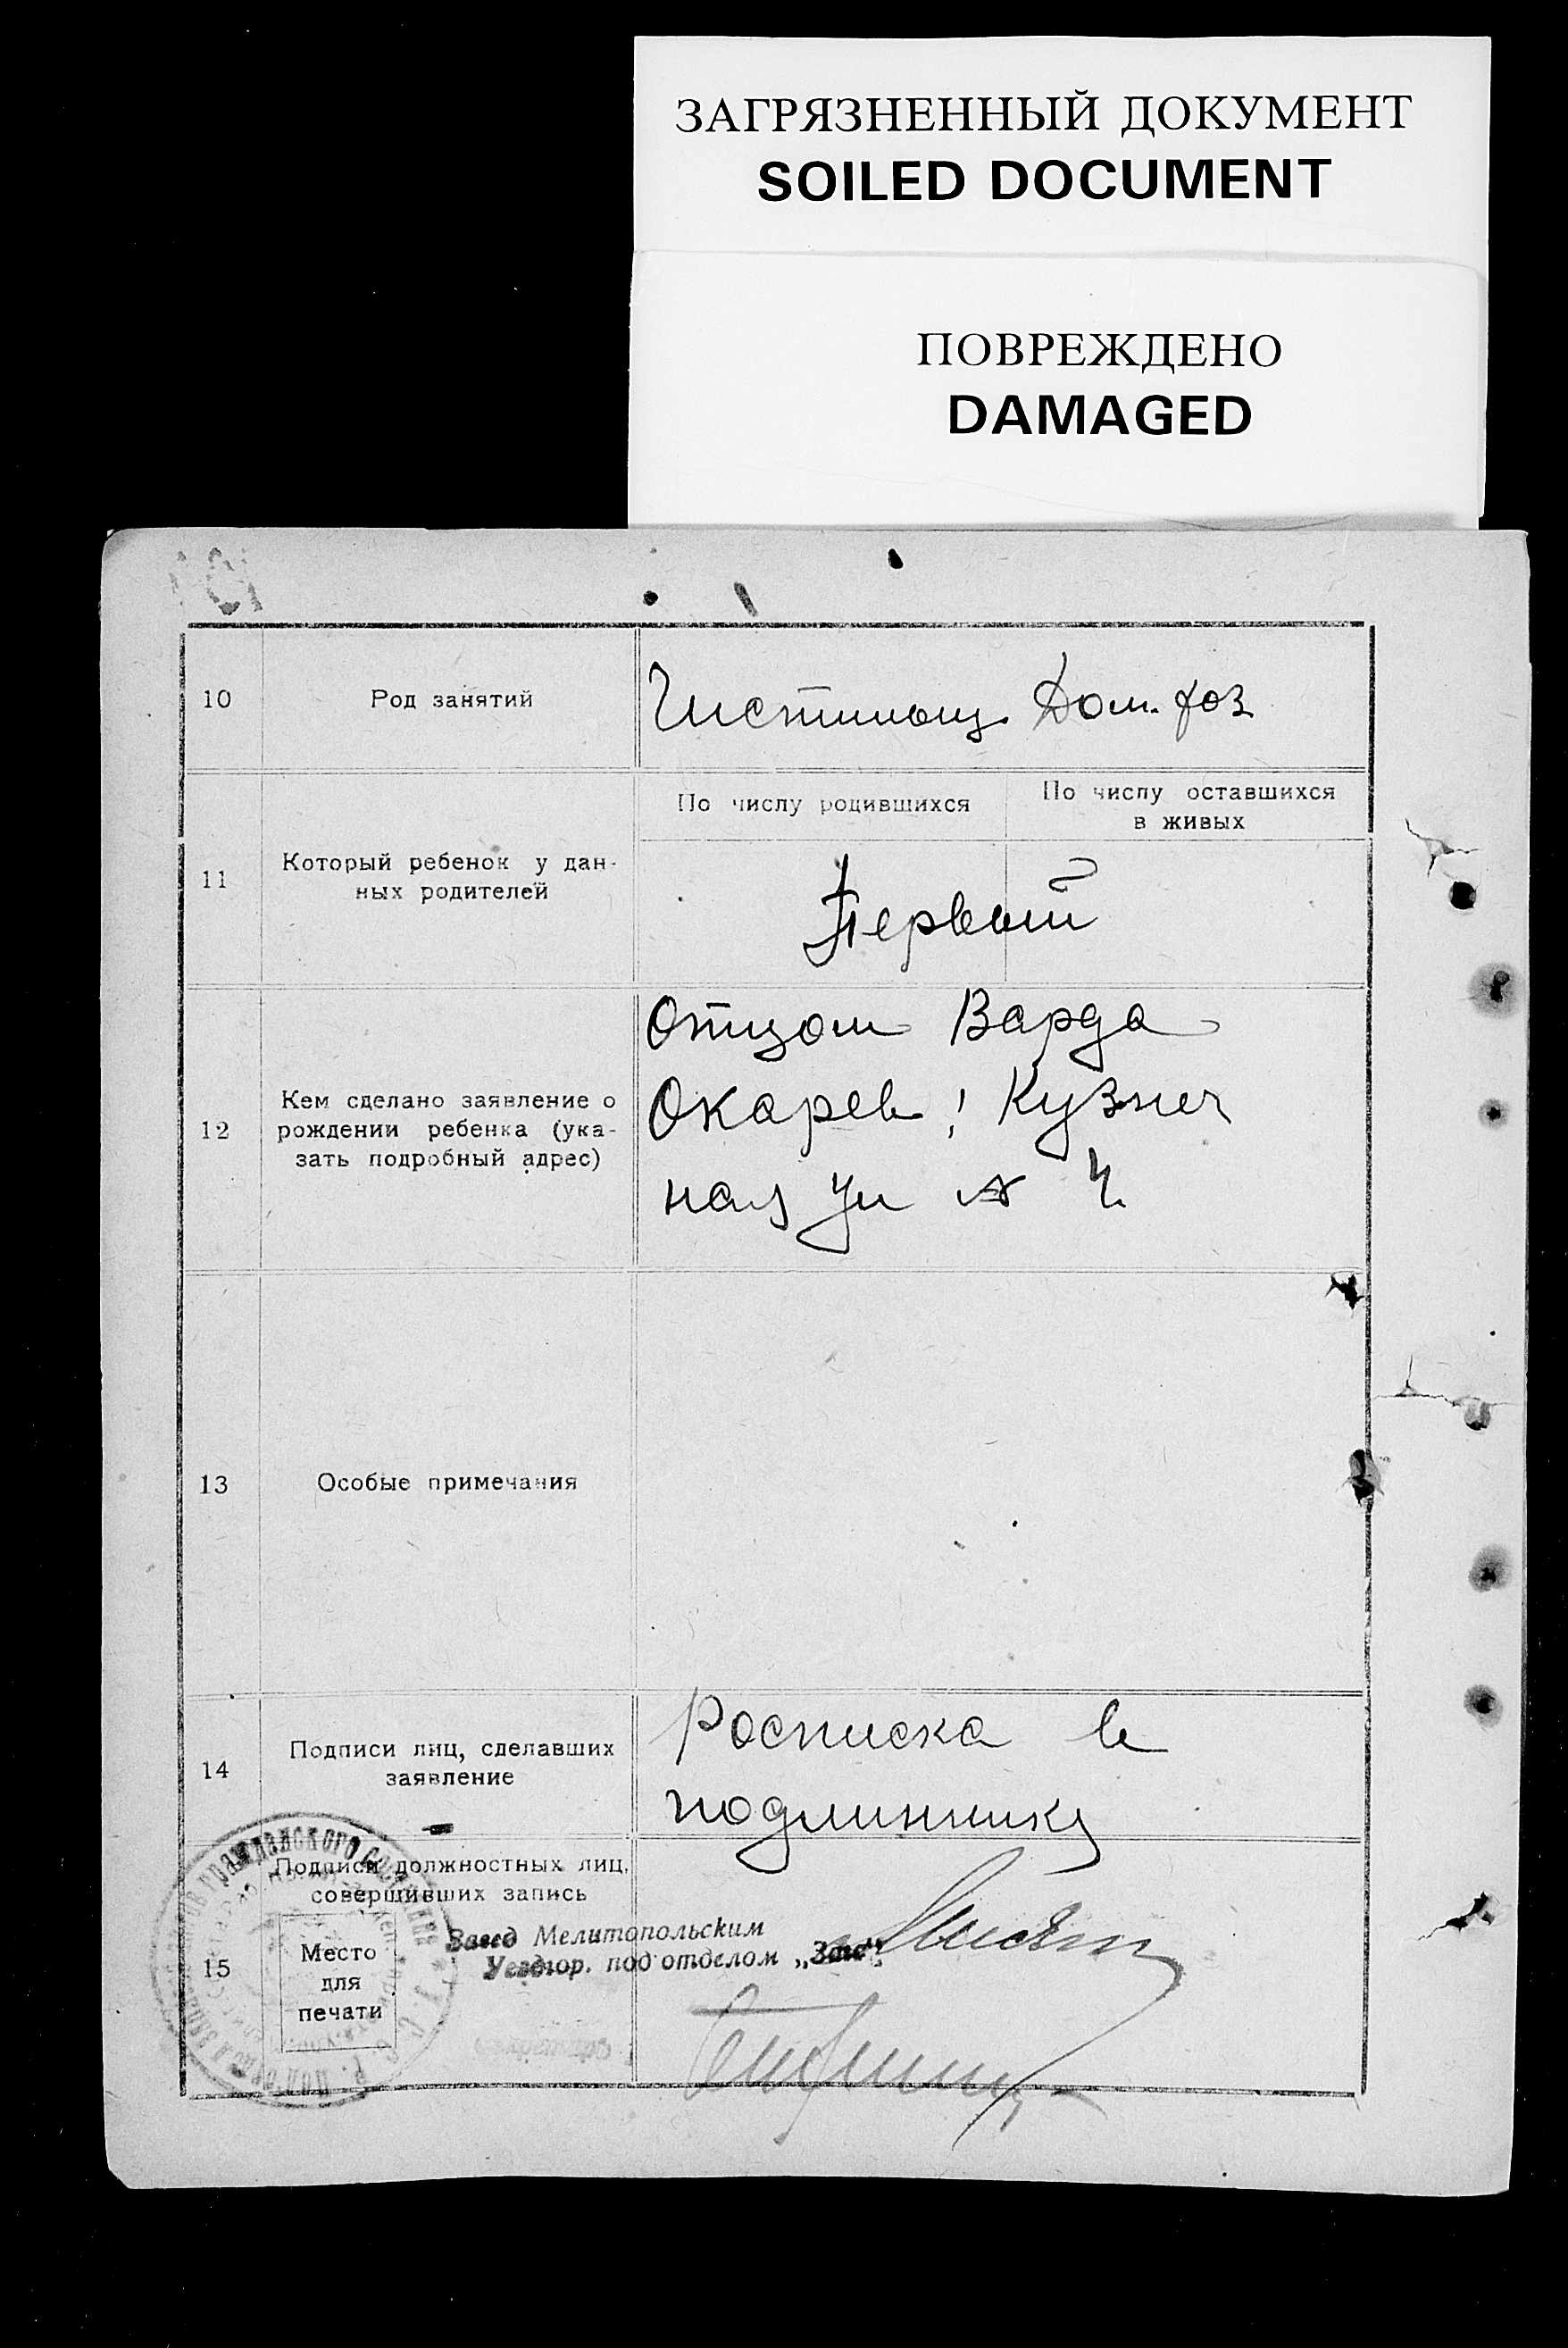 ЗАГРЯЗНЕННЫЙ ДОКУМЕНТ
SOILED DOCUMENT
ПОВРЕЖДЕНО
DAMAGED
10 Род занятий Дом. хоз
По числу родившихся По числу оставшихся
в живых
11 Который ребенок у дан-
ных родителей
Первый
12 Кем сделано заявление о
рождении ребенка (ука-
зать подробный адрес)
Отцом Варда
Окарев; Кузнеч
ная ул № 4
13 Особые примечания
14 Подписи лиц, сделавших
заявление
Росписка в
подлиннику
15 Подписи должностных лиц,
совершивших запись
Место
для
печати
Завед Мелитопольским
под отделом „Загс“
гражданского